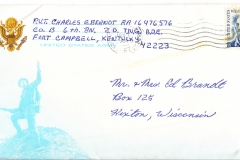 PVT. CHARLES E BRANDT RA 16476576
CO. B 6TH. BN. 2D. TNG. BDE.
FORT CAMPBELL, KENTUCKY
42223
Mr. & Mrs Ed Brandt
Box 125
Hixton, Wisconsin